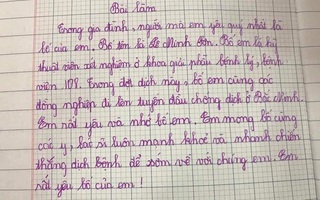 Bài làm
Trong gia đình, người mà em yêu quý nhất là
bố của em. Bố tên là Lê Minh Sơn. Bố em là kỹ
thuật viên xét nghiệm ở khoa giải phẫu bệnh lý, bệnh
viện 108. Trong đợt dịch này, bố em cùng các
đồng nghiệp đi lên tuyến đầu chống dịch ở Bắc Ninh.
Em rất yêu và nhớ bố em. Em mong bố cùng
các y, bác sĩ luôn mạnh khoẻ và nhanh chiến
thắng dịch bệnh để sớm về với chúng em. Em
rất yêu bố của em!